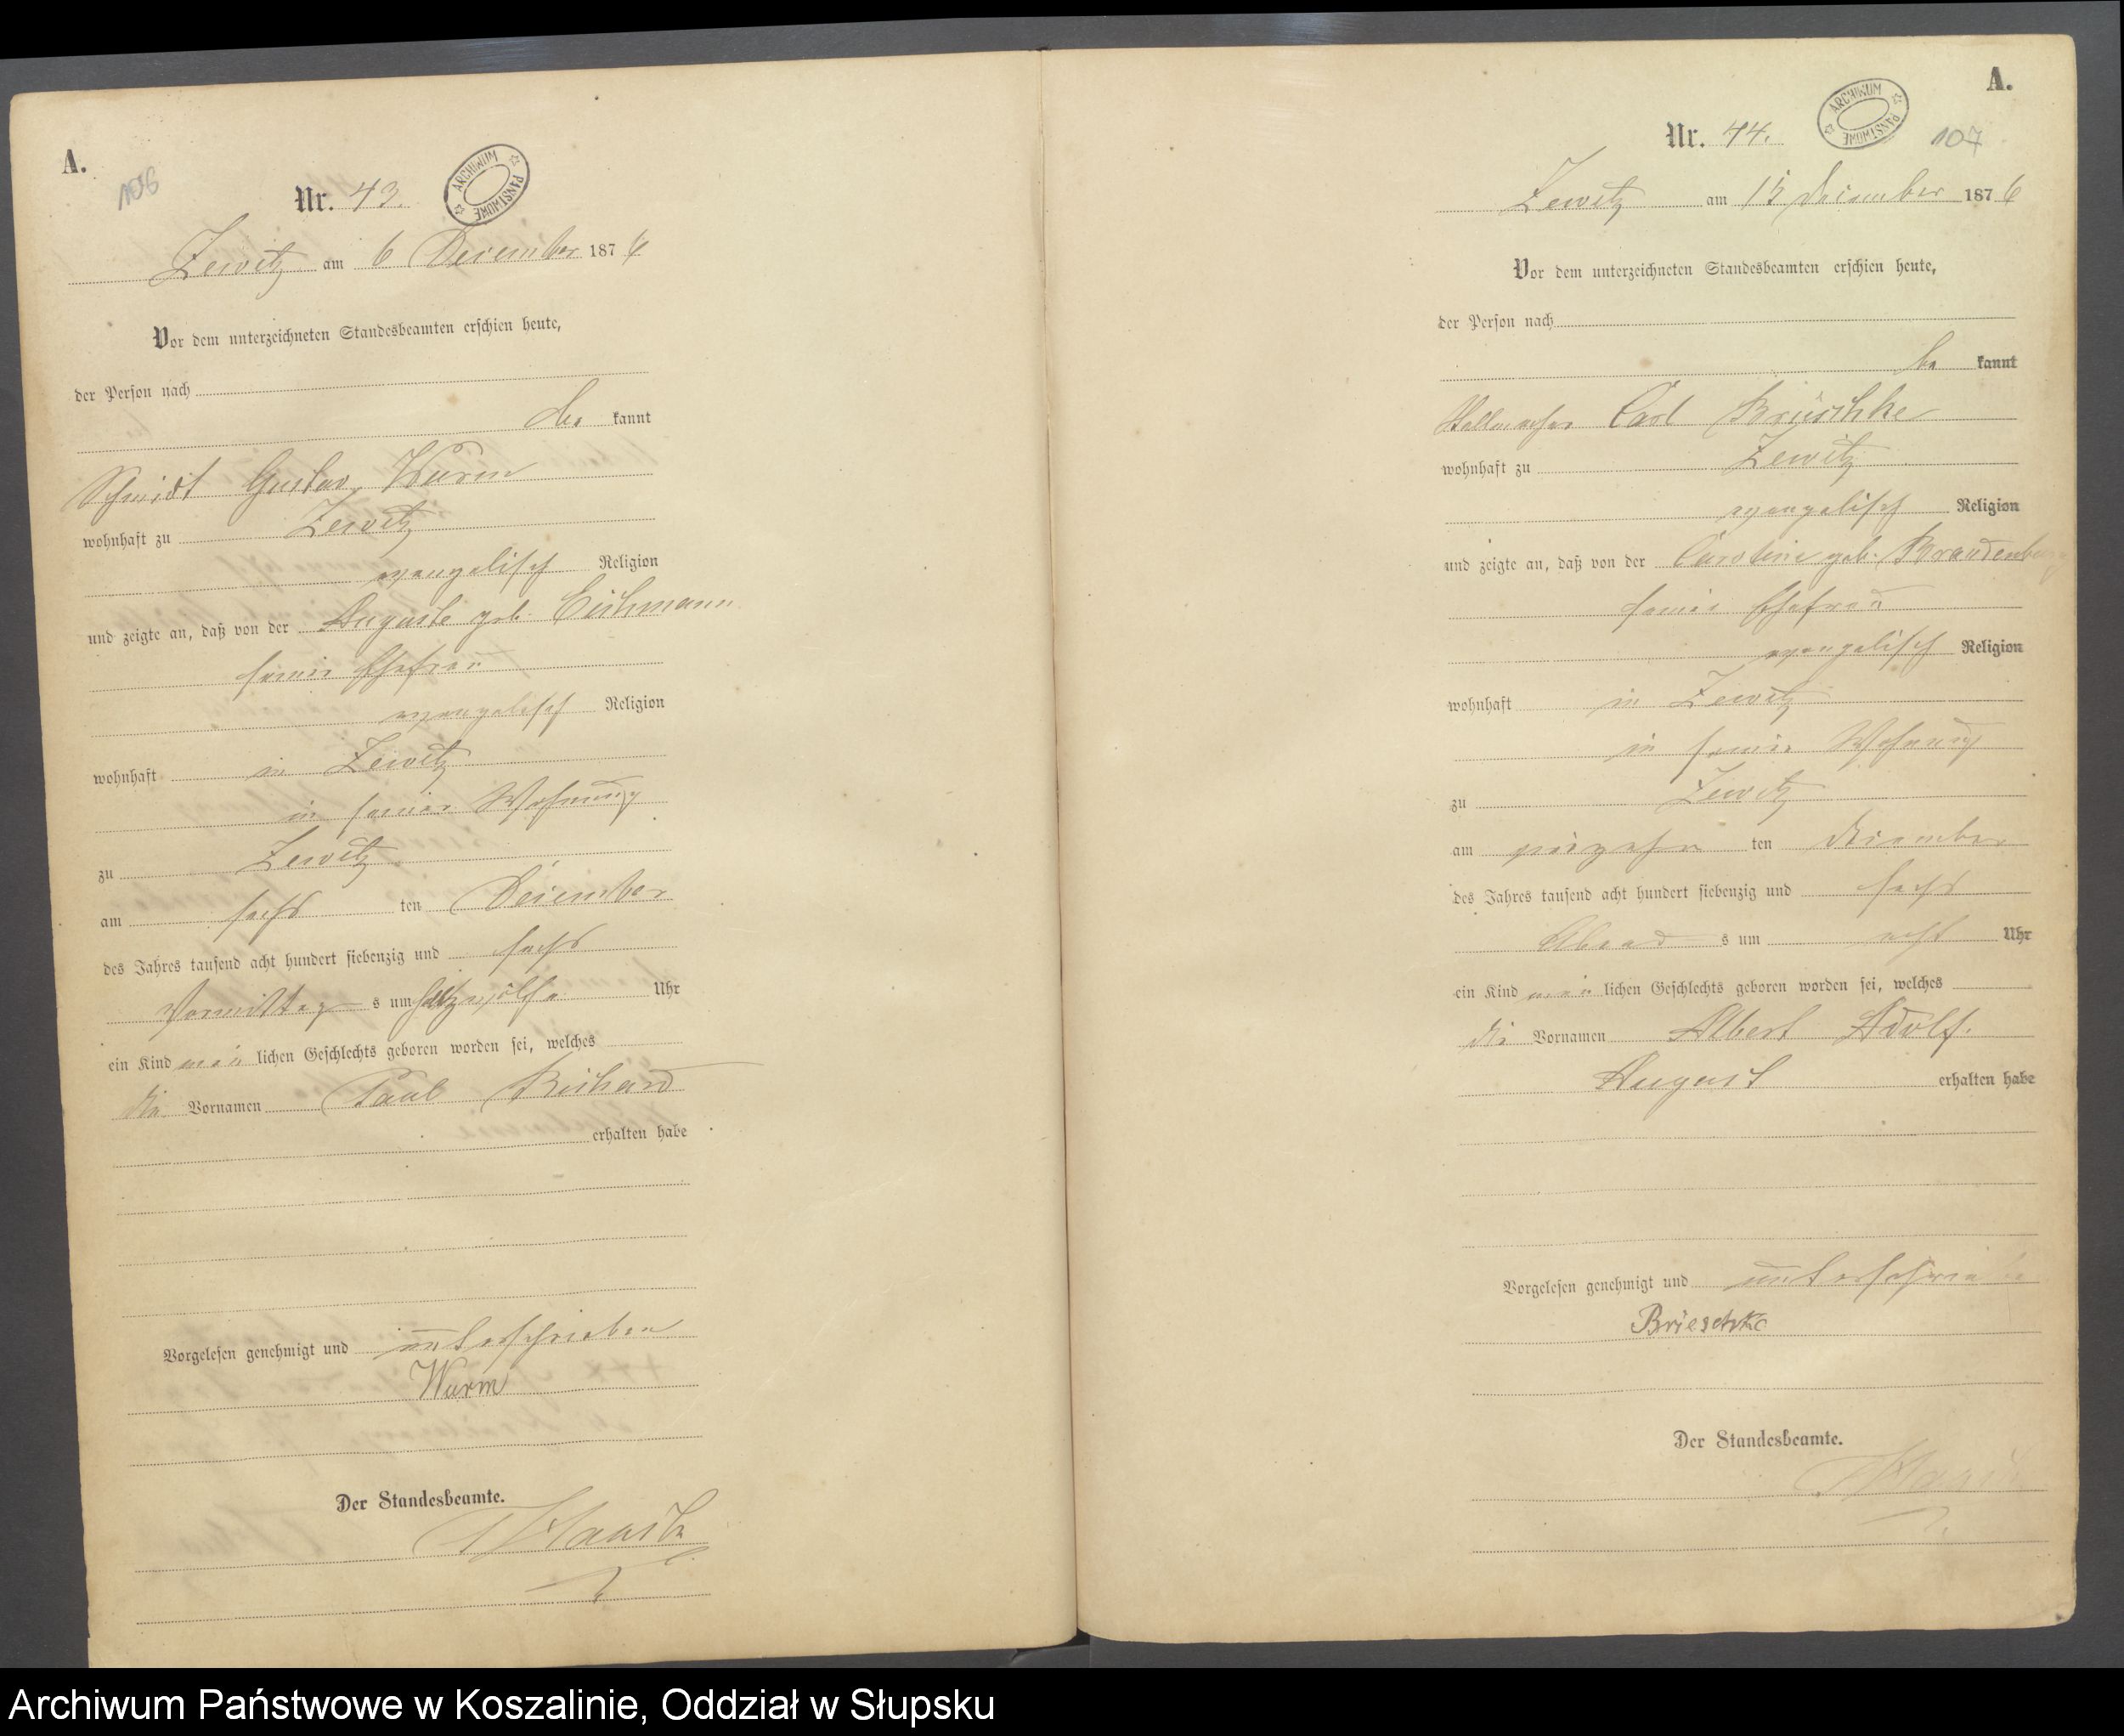 A.
106
Nr. 43.
ARCHIWUM PAŃSTWOWE
Zewitz am 6 December 1876
Vor dem unterzeichneten Standesbeamten erschien heute,
der Person nach
be kannt
Schmidt Gustav Wurm
wohnhaft zu Zewitz
evangelisch Religion
und zeigte an, daß von der Auguste geb. Eichmann
seiner Ehefrau
evangelisch Religion
wohnhaft in Zewitz
in seiner Wohnung
zu Zewitz
am sechs ten December
des Jahres tausend acht hundert siebenzig und sechs
Vormittag s um halb zwölf Uhr
ein Kind män lichen Geschlechts geboren worden sei, welches
die Vornamen Paul Richard
erhalten habe
Vorgelesen genehmigt und unterschrieben
Wurm
Der Standesbeamte.
A.
Nr. 44.
ARCHIWUM PAŃSTWOWE
107
Zewitz am 15 December 1876
Vor dem unterzeichneten Standesbeamten erschien heute,
der Person nach
be kannt
Stellmacher Carl Brüschke
wohnhaft zu Zewitz
evangelisch Religion
und zeigte an, daß von der Caroline geb. Brandenburg
seiner Ehefrau
evangelisch Religion
wohnhaft in Zewitz
in seiner Wohnung
zu Zewitz
am ten December
des Jahres tausend acht hundert siebenzig und sechs
Abend s um acht Uhr
ein Kind män lichen Geschlechts geboren worden sei, welches
die Vornamen Albert Adolf
August erhalten habe
Vorgelesen genehmigt und unterschrieben
Brieschke
Der Standesbeamte.
Archiwum Państwowe w Koszalinie, Oddział w Słupsku